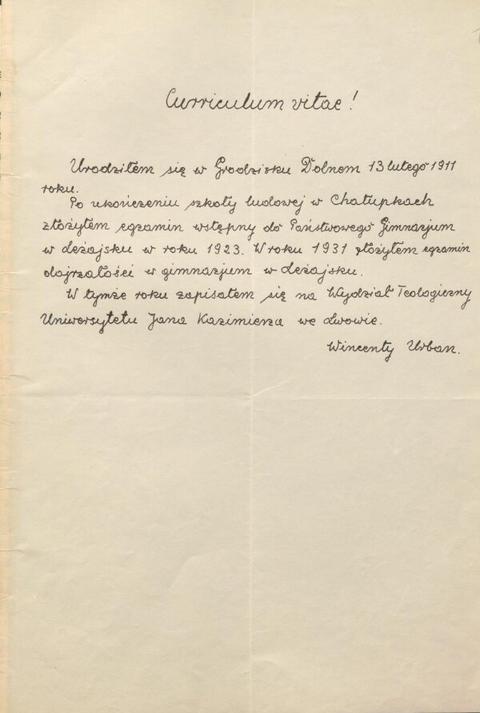 Curriculum vitae!
Urodziłem się w Grodzisku Dolnem 13 lutego 1911
roku.
Po ukończeniu szkoły ludowej w Chałupkach
złożyłem egzamin wstępny do Państwowego Gimnazjum
w Leżajsku w roku 1923. W roku 1931 złożyłem egzamin
dojrzałości w gimnazjum w Leżajsku.
W tymże roku zapisałem się na Wydział Teologiczny
Uniwersytetu Jana Kazimierza we Lwowie.
Wincenty Urban.